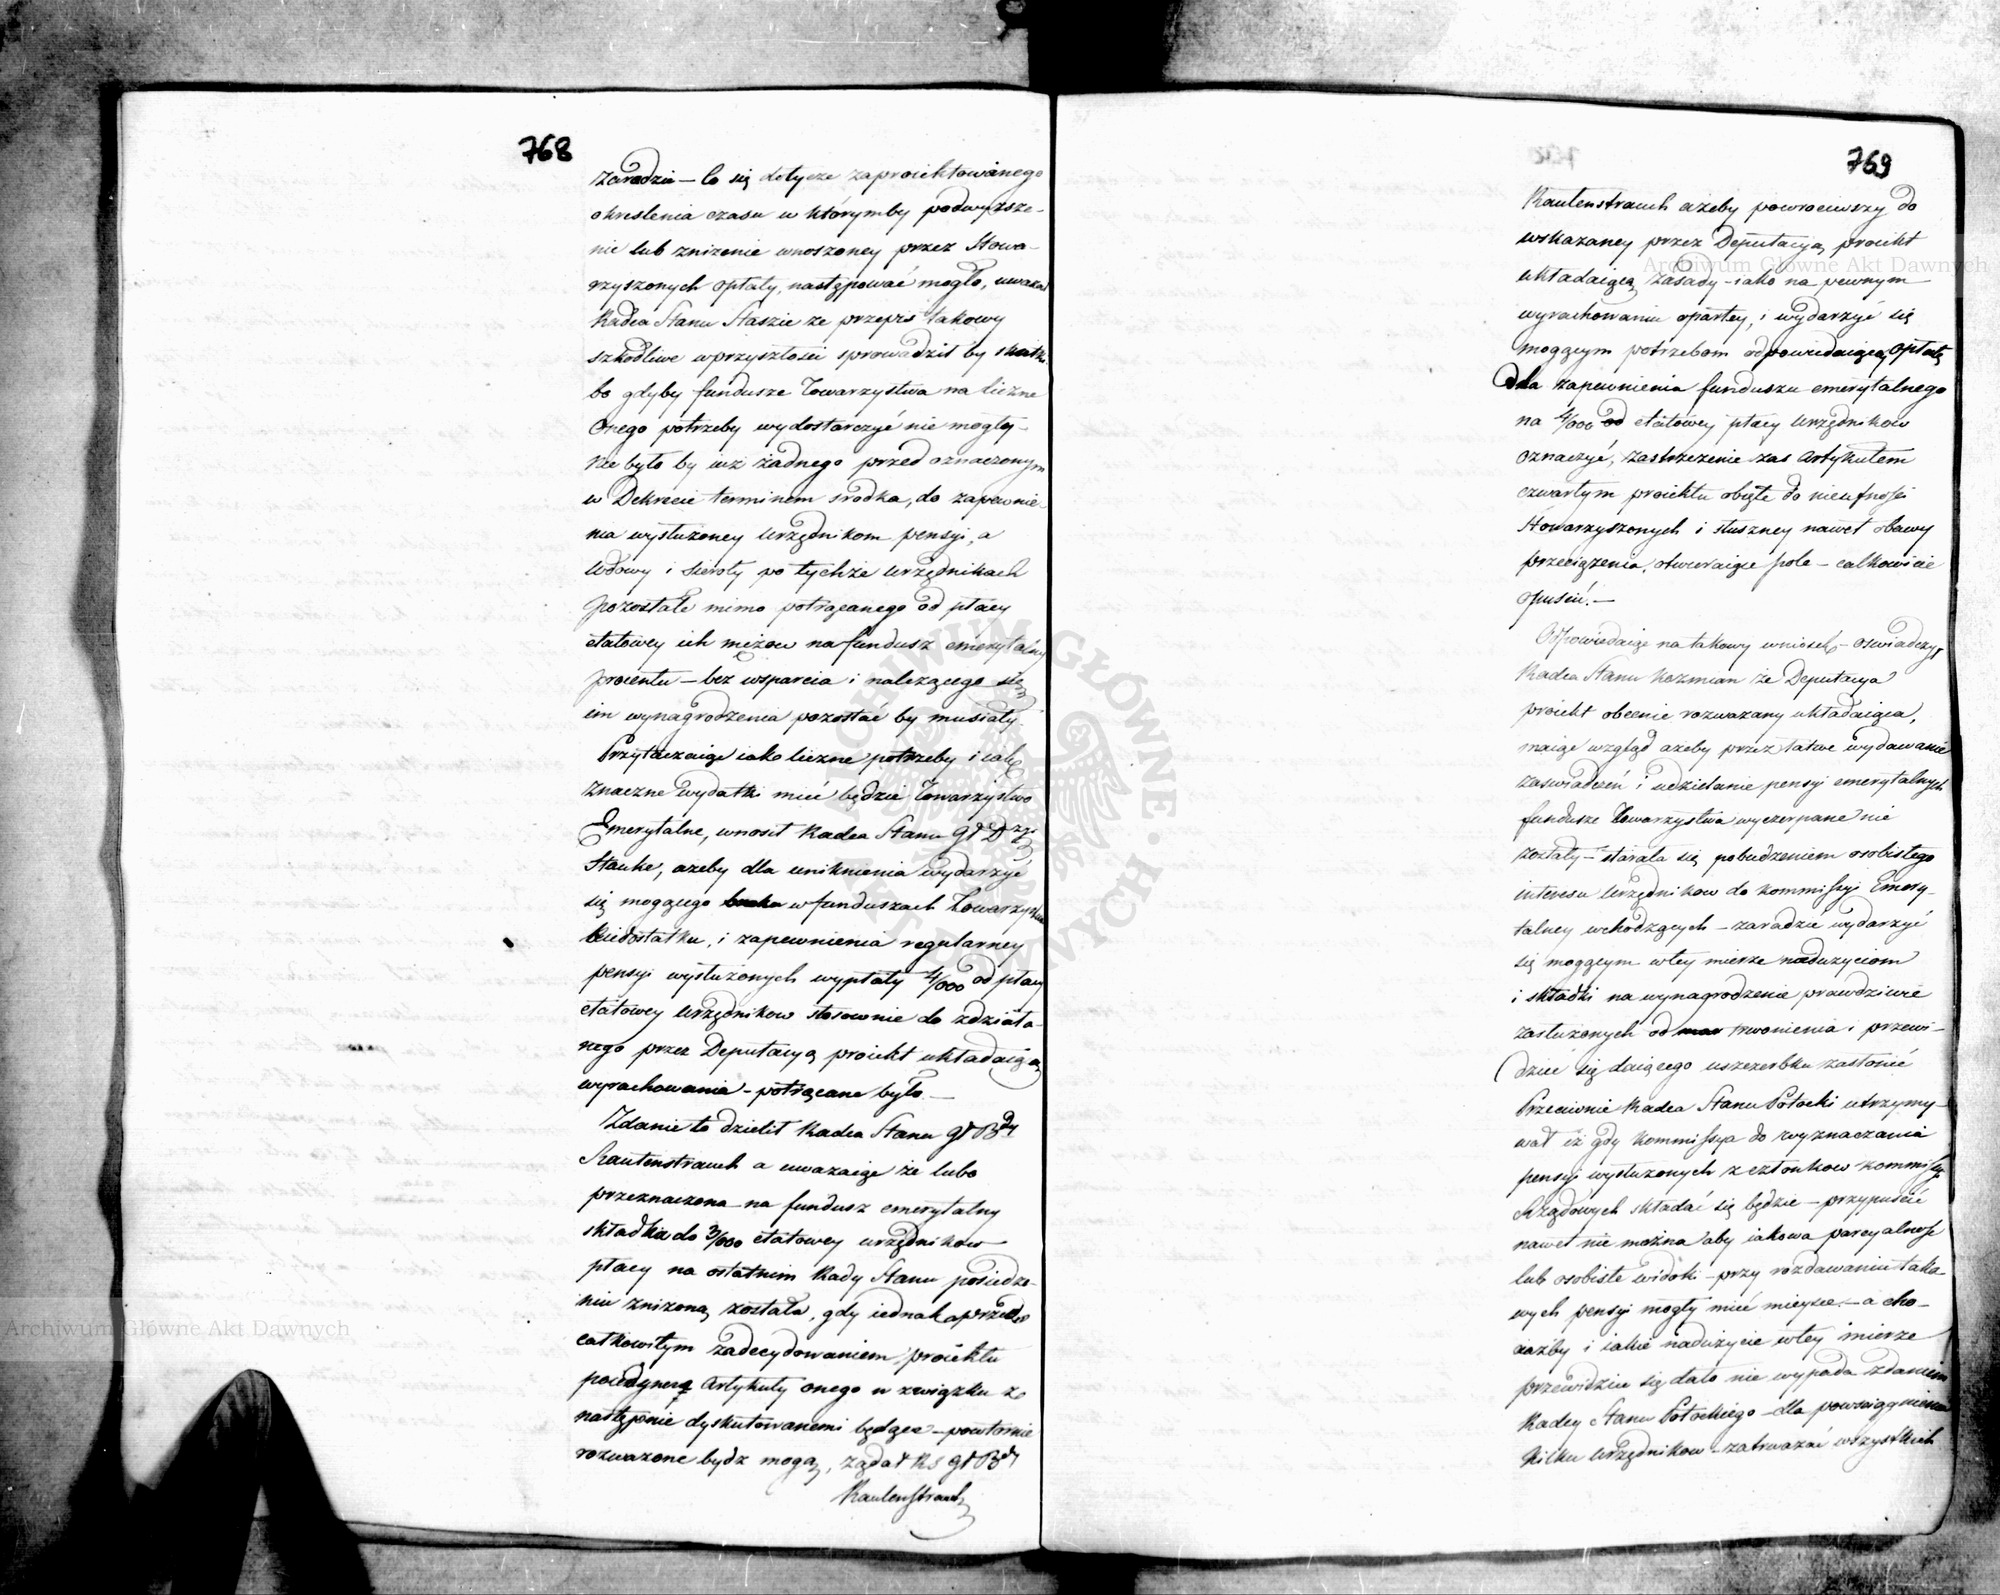 768
zaradzić – Co się dotycze zaproiektowanego
okreslenia czasu w którymby podwyższe-
nie lub zniżenie wnoszoney przez Stowa-
rzyszonych opłaty, następować mogło, uważał
Radca Stanu Staszic że przepis takowy
szkodliwe w przyszłości sprowadził by skutki
bo gdyby fundusze Towarzystwa na liczne
Onego potrzeby wydostarczyć nie mogły –
nie było by iuż żadnego przed oznaczonym
w Dekrecie terminem srodka, do zapewnie-
nia wysłużoney Urzędnikom pensyi, a
Wdowy i Sieroty po tychże urzędnikach
pozostałe mimo potrącanego od płacy
etatowey ich mężow na fundusz emerytalny
procentu – bez wsparcia i należącego się
im wynagrodzenia pozostać by musiały.
Przytaczaiąc iako liczne potrzeby i iak
znaczne wydatki mieć będzie Towarzystwo
Emerytalne, wnosił Radca Stanu Gł Dyzyi
Hauke, ażeby dla uniknienia wydarzyć
się mogącego w funduszach Towarzystwa
Niedostatku, i zapewnienia regularney
pensyi wysłużonych wypłaty 4/000 od płacy
etatowey Urzędnikow stosownie do zdziała-
nego przez Deputacyą proiekt układaiącą
wyrachowania – potrącane było –
Zdanie to dzielił Radca Stanu Gł Bdy
Rautenstrauch a uważaiąc że lubo
przeznaczona na fundusz emerytalny
składka do 3/000 etatowey urzędnikow
płacy na ostatnim Rady Stanu posiedze-
niu zniżoną została, gdy iednak przed
całkowitym zadecydowaniem proiektu
poiedyncze Artykuły onego w związku ze
następnie dyskutowanemi będące – powtornie
rozważone bydz mogą, żądał RS Gł Bdy
Rautenstrauch
769
Rautenstrauch ażeby powrociwszy do
wskazaney przez Deputacyą proiekt
układaiącą zasady – iako na pewnym
wyrachowaniu opartey, i wydarzyć się
mogącym potrzebom odpowiedaiącą, Opłatę
dla zapewnienia funduszu emerytalnego
na 4/000 od etatowey płacy Urzędnikow
oznaczyć, zastrzeżenie zas Artykułem
czwartym proiektu obięte do nieufności
Stowarzyszonych i słuszney nawet obawy
przeciążenia, otwieraiące pole – całkowicie
opuścić. –
Odpowiedaiąc na takowy wniosek – oswiadczył
Radca Stanu Kozmian że Deputacya
proiekt obecnie rozważany układaiąca,
maiąc wzgląd ażeby przez łatwe wydawanie
zaswiadczeń i udzielanie pensyi emerytalnych
fundusze Towarzystwa wyczerpane nie
zostały – starała się pobudzeniem osobistego
interesu Urzędnikow do Kommissyi Emery-
talney wchodzących – zaradzić wydarzyć
się mogącym w tey mierze nadużyciom
i składki na wynagrodzenie prawdziwie
zasłużonych od trwonienia i przewi-
dzieć się daiącego uszczerbku zasłonić
Przeciwnie Radca Stanu Potocki utrzymy-
wał iż gdy Kommissya do wyznaczania
pensyi wysłużonych z członkow Kommissyi
Rządowych składać się będzie – przypuścić
nawet nie można aby iakowa parcyalność
lub osobiste widoki – przy rozdawaniu tako-
wych pensyi mogły mieć mieysce – a cho-
ciażby i iakie nadużycie w tey mierze
przewidzieć się dało nie wypada zdaniem
Radcy Stanu Potockiego – dla powsciągnienia
kilku Urzędnikow – zatrważać wszystkich
Archiwum Główne Akt Dawnych
Archiwum Główne Akt Dawnych